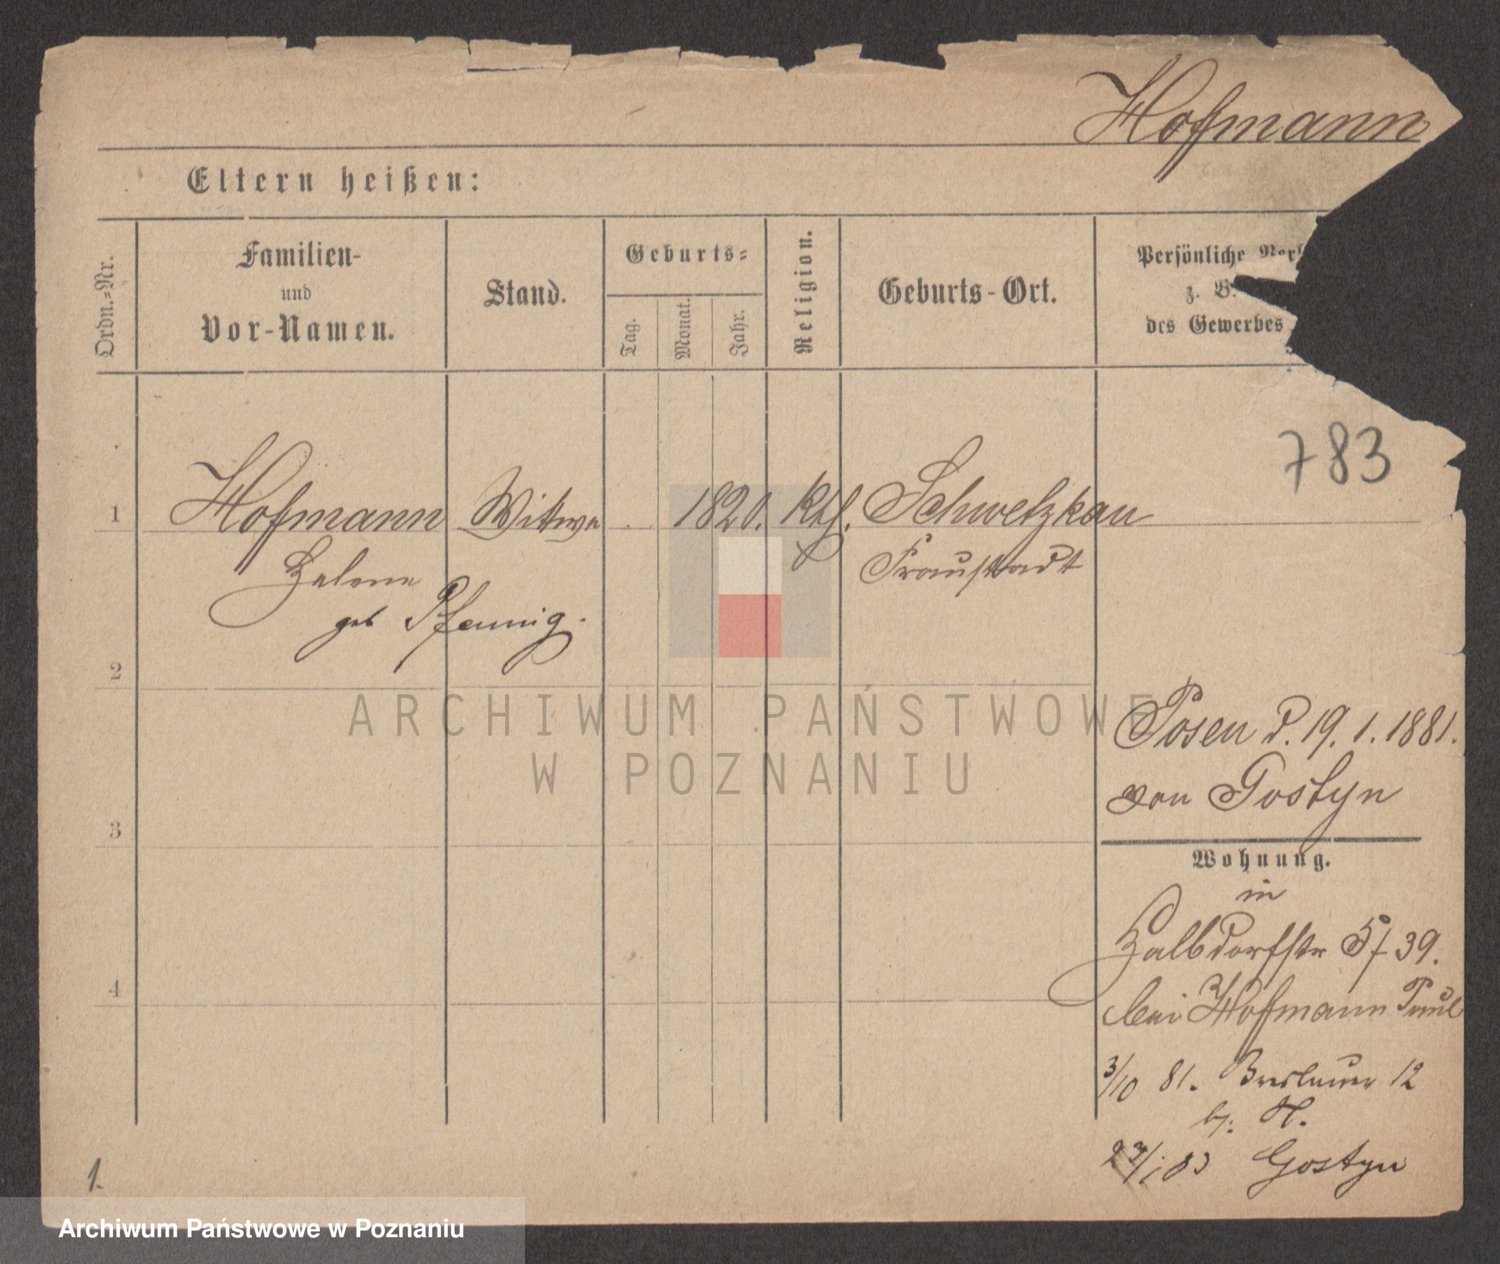 Hofmann
Eltern heißen:
Ordn.=Nr.
Familien-
und
Vor-Namen.
Stand.
Geburts=
Tag.
Monat.
Jahr.
Religion.
Geburts-Ort.
Persönliche
z. B.
des Gewerbes
783
1 Hofmann Witwe 1820. Kth. Schwetzkau
Helene Fraustadt
geb Pfennig.
2
ARCHIWUM PAŃSTWOWE
W POZNANIU
Posen d. 19. 1. 1881.
von Gostyn
3
Wohnung.
in
Halbdorfstr 39.
bei Hofmann Paul
4
3/10 81. Breslauer 12
b. H.
27/1 83 Gostyn
1.
Archiwum Państwowe w Poznaniu